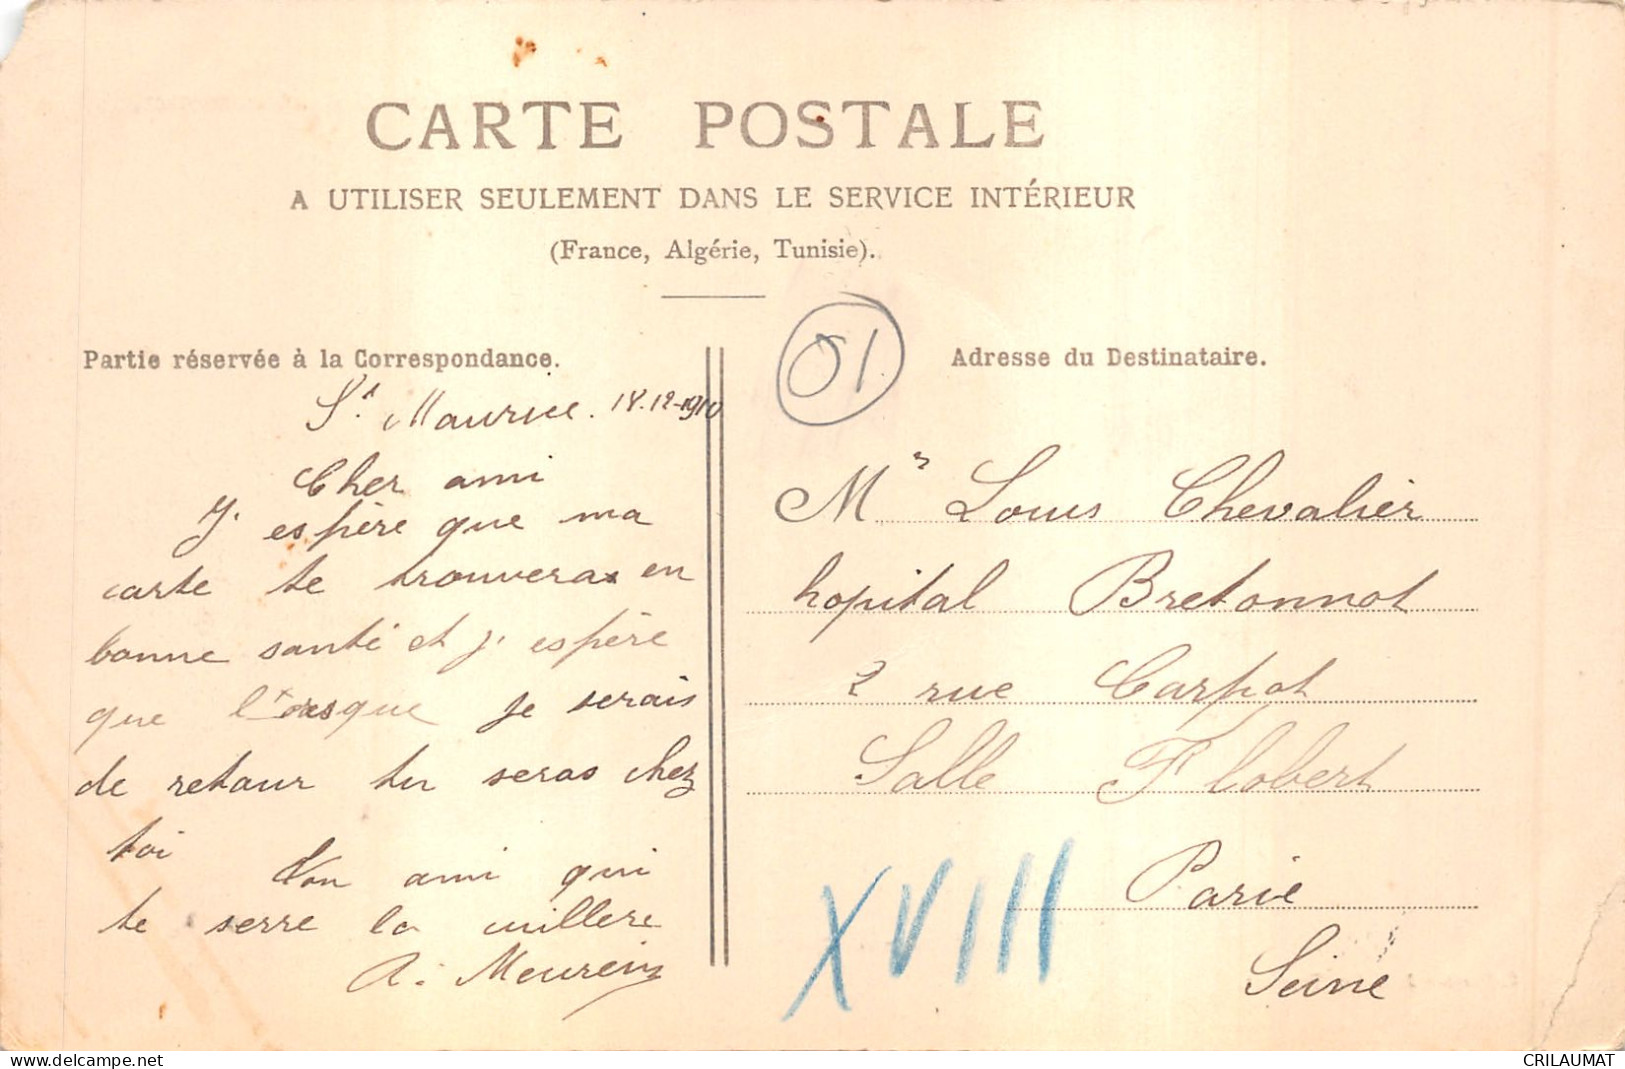 CARTE POSTALE
A UTILISER SEULEMENT DANS LE SERVICE INTÉRIEUR
(France, Algérie, Tunisie).
Partie réservée à la Correspondance.
St Maurice. 18.12-1910
Cher ami
J. espère que ma
carte te trouveras en
bonne santé et j. espère
que lorsque je serais
de retour tu seras chez
toi
Ton ami qui
te serre la cuillere
A. Meurein
01
Adresse du Destinataire.
Mr Louis Chevalier
hopital Bretonnot
2 rue Carpot
Salle Flobert
Parie
Seine
XVIII
www.delcampe.net
CRILAUMAT